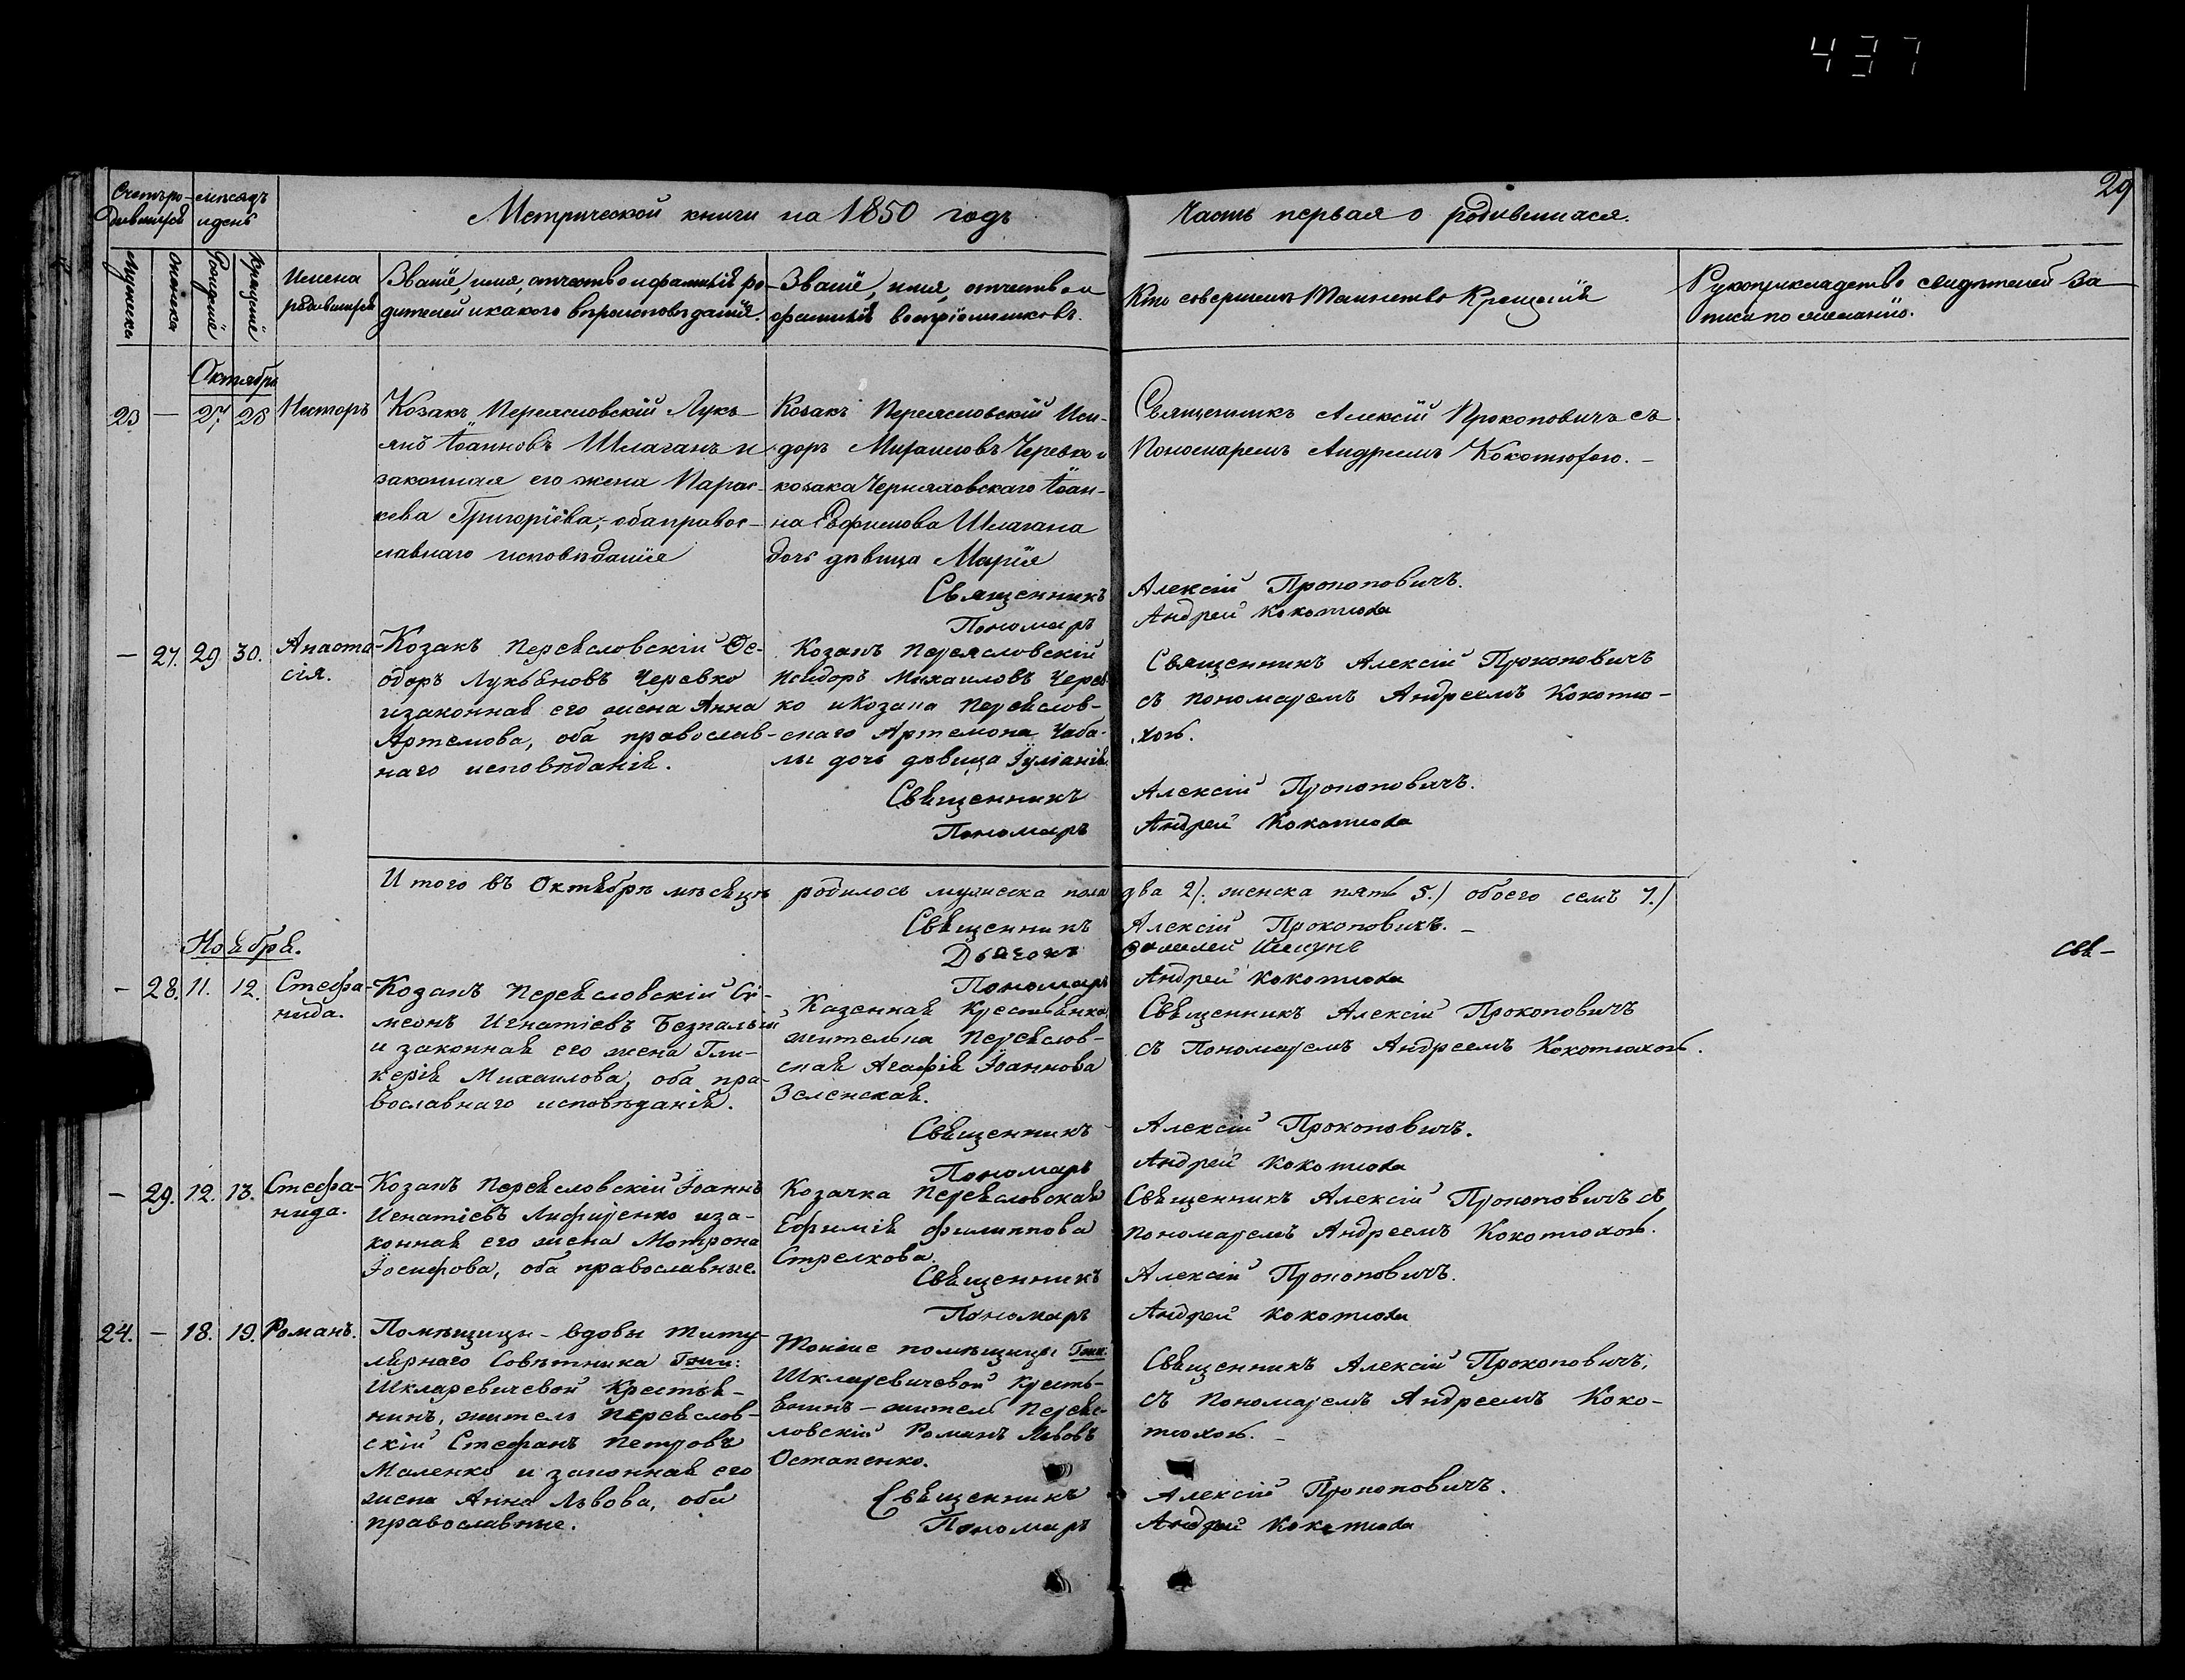 437
29
Счетъ ро- мѣсяцъ
дившихся и день
Метрической книги на 1850 годъ
Часть первая о родившихся.
Мужеска
Женска
Рожденія
Крещенія
Имена
родившихся
Званіе, имя, отчество и фамилія ро-
дителей и какого вѣроисповѣданія.
Званіе, имя, отчество и
фамилія воспріемниковъ.
Кто совершалъ Таинство Крещенія
Рукоприкладство свидѣтелей за
писи по желанію.
Октябрь
23 — 27 28 Несторъ
Козакъ Переясловскій Лукь-
янъ Іоанновъ Шлаганъ и
законная его жена Парас-
кева Григоріева, оба правос-
лавнаго исповѣданія
Козакъ Переясловскій Иси-
доръ Михаиловъ Черевко и
козака Черняховскаго Іоан-
на Евфимова Шлагана
дочь дѣвица Марія
Священникъ Алексій Прокоповичъ съ
Пономаремъ Андреемъ Кокотюхою. —
Священникъ Алексій Прокоповичъ.
Пономарь Андрей Кокотюха
— 27. 29 30. Анаста-
сія.
Козакъ Переясловскій Ѳе-
одоръ Лукьяновъ Черевко
и законная его жена Анна
Артемова, оба православ-
наго исповѣданія.
Козакъ Переясловскій
Исидоръ Михаиловъ Черев-
ко и Козака Переяслов-
скаго Артемона Чаба-
лы дочь дѣвица Іуліанія.
Священникъ Алексій Прокоповичъ
съ пономаремъ Андреемъ Кокотю-
хою.
Священникъ Алексій Прокоповичъ.
Пономарь Андрей Кокотюха
Итого въ Октябрѣ мѣсяцѣ родилось мужеска пола два 2/. женска пять 5./ обоего семь 7./
Священникъ Алексій Прокоповичъ. —
Дьячокъ
Пономарь Андрей Кокотюха
свя-
Ноября.
— 28. 11. 12. Стефа-
нида.
Козакъ Переясловскій Си-
меонъ Игнатіевъ Безпалый
и законная его жена Гли-
керія Михаилова, оба пра-
вославнаго исповѣданія.
Казенная Крестьянка,
жителька Переяслов-
ская Агафія Іоаннова
Зеленская.
Священникъ Алексій Прокоповичъ
съ Пономаремъ Андреемъ Кокотюхою.
Священникъ Алексій Прокоповичъ.
Пономарь Андрей Кокотюха
— 29. 12. 13. Стефа-
нида.
Козакъ Переясловскій Іоаннъ
Игнатіевъ Лифиренко и за-
конная его жена Мотрона
Іосифова, оба православные.
Козачка Переясловская
Ефимія Филиппова
Стрелкова.
Священникъ Алексій Прокоповичъ съ
пономаремъ Андреемъ Кокотюхою.
Священникъ Алексій Прокоповичъ.
Пономарь Андрей Кокотюха
24. — 18. 19. Романъ.
Помѣщицы-вдовы титу-
лярнаго Совѣтника
Шкляревичевой Крестья-
нинъ, житель Переяслов-
скій Стефанъ Петровъ
Маленко и законная его
жена Анна Львова, оба
православные.
Тоиже помѣщицы
Шкляревичевой Кресть-
янинъ - житель Переяс-
ловскій Романъ Львовъ
Остапенко.
Священникъ Алексій Прокоповичъ,
съ Пономаремъ Андреемъ Коко-
тюхою. —
Священникъ Алексій Прокоповичъ.
Пономарь Андрей Кокотюха